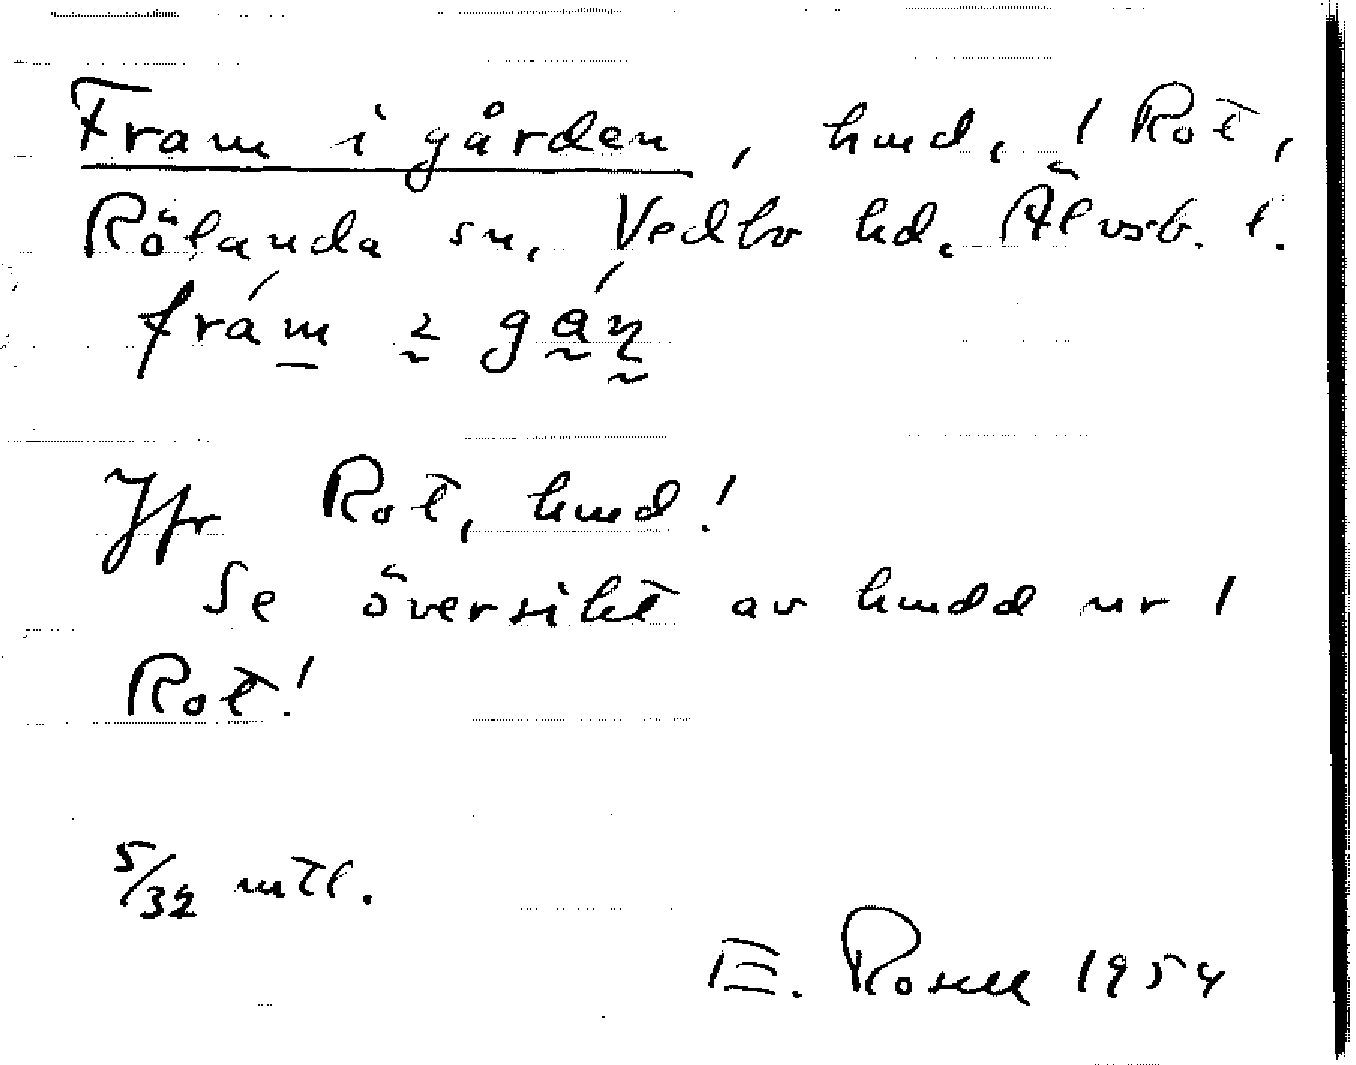 Fram i gården, hmd, 1 Rot,
Rölanda sn, Vedbo hd, Älvsb. l.
Jfr Rot, hmd!
Se översikt av hmdd ur 1
Rot!
5/32 mtl.
E. Rosell 1954